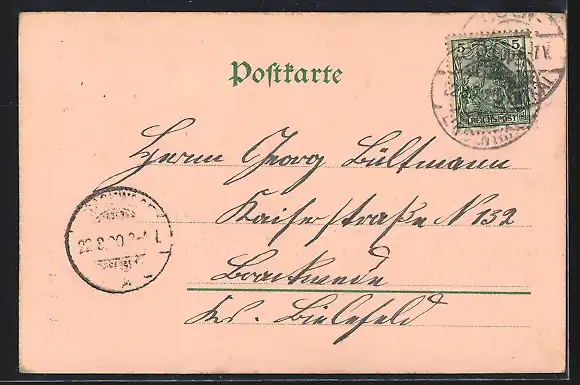 5 5
REICHSPOST
Postkarte
Herrn Georg Bültmann
Kaiserstraße N 132
22.8.00
Brackwede
Kr. Bielefeld